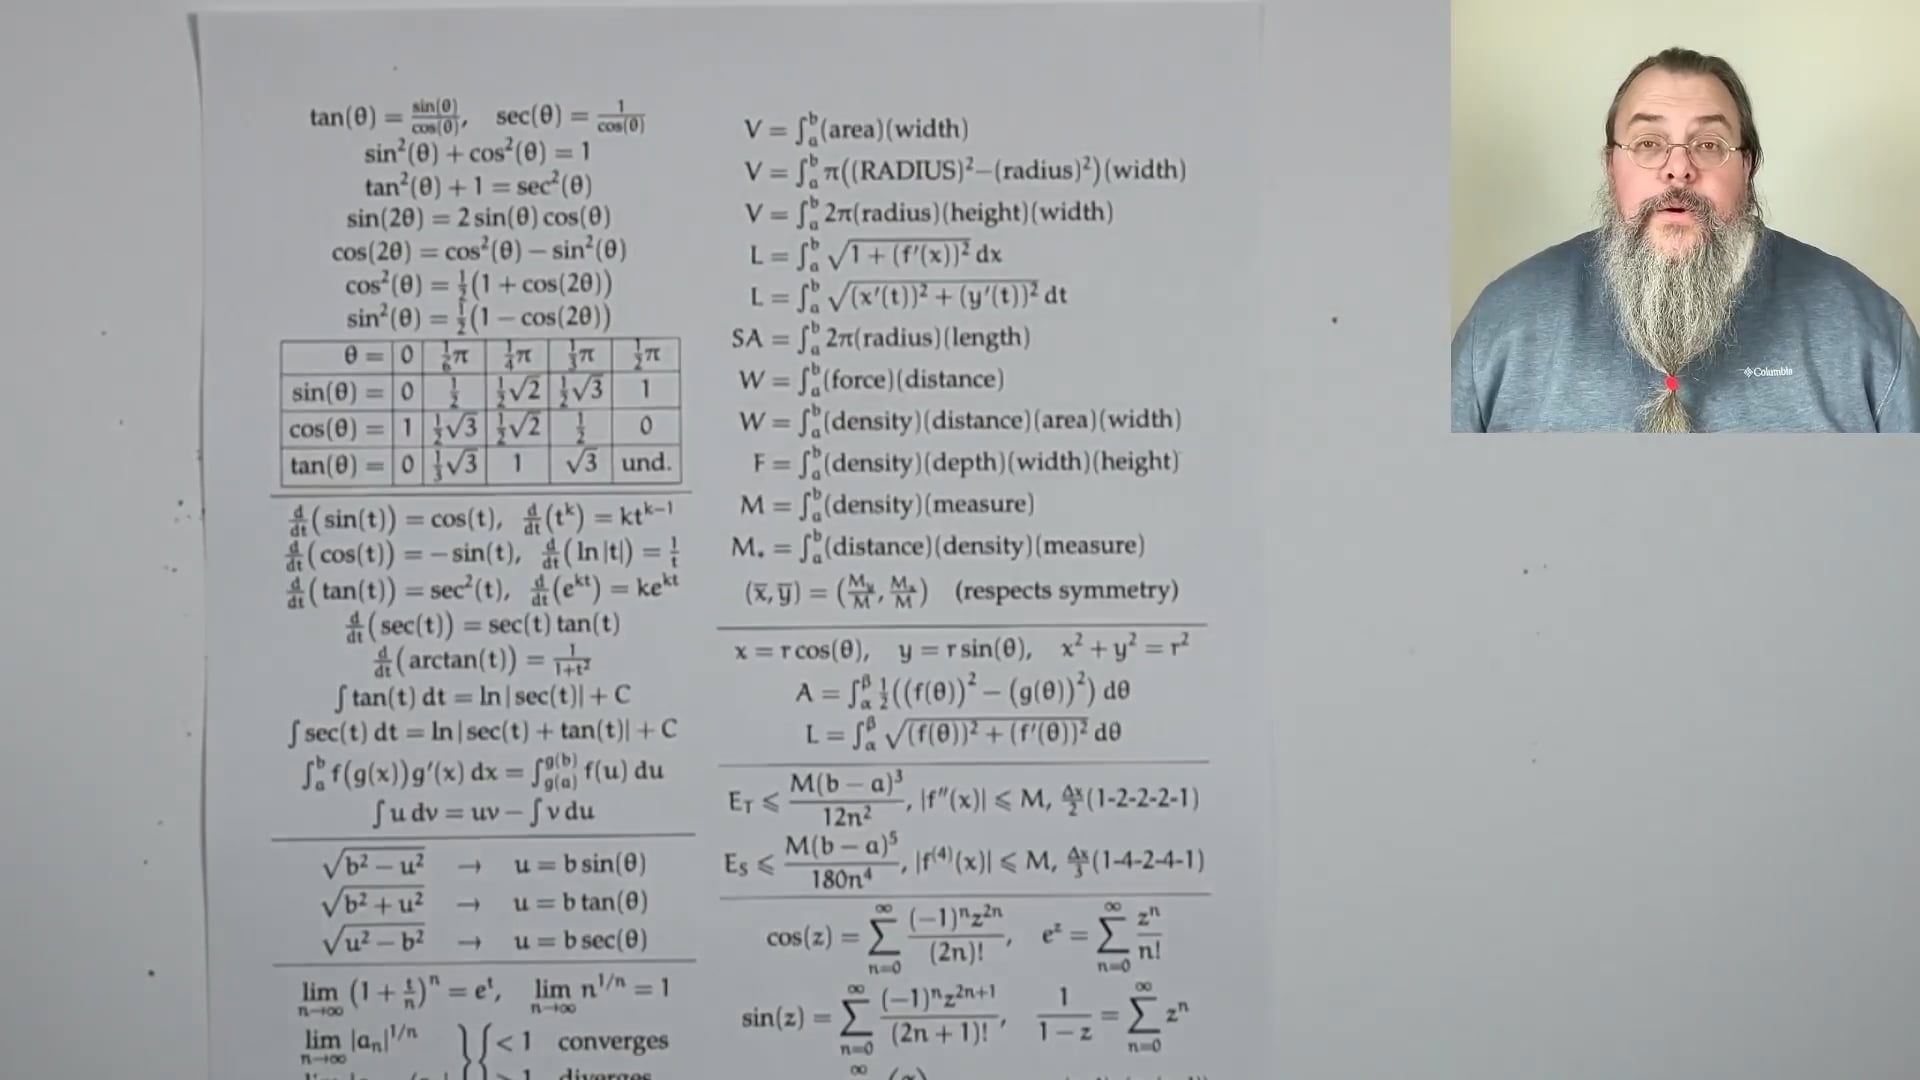 tan(θ) = sin(θ)/cos(θ), sec(θ) = 1/cos(θ)
sin²(θ) + cos²(θ) = 1
tan²(θ) + 1 = sec²(θ)
sin(2θ) = 2 sin(θ) cos(θ)
cos(2θ) = cos²(θ) − sin²(θ)
cos²(θ) = ½(1 + cos(2θ))
sin²(θ) = ½(1 − cos(2θ))
θ = 0 1/6π 1/4π 1/3π 1/2π
sin(θ) = 0 1/2 1/2√2 1/2√3 1
cos(θ) = 1 1/2√3 1/2√2 1/2 0
tan(θ) = 0 1/3√3 1 √3 und.
d/dt(sin(t)) = cos(t), d/dt(t^k) = kt^(k−1)
d/dt(cos(t)) = −sin(t), d/dt(ln|t|) = 1/t
d/dt(tan(t)) = sec²(t), d/dt(e^(kt)) = ke^(kt)
d/dt(sec(t)) = sec(t) tan(t)
d/dt(arctan(t)) = 1/(1+t²)
∫ tan(t) dt = ln|sec(t)| + C
∫ sec(t) dt = ln|sec(t) + tan(t)| + C
∫_a^b f(g(x))g′(x) dx = ∫_g(a)^g(b) f(u) du
∫ u dv = uv − ∫ v du
√(b² − u²) → u = b sin(θ)
√(b² + u²) → u = b tan(θ)
√(u² − b²) → u = b sec(θ)
lim n→∞ (1 + t/n)^n = e^t, lim n→∞ n^(1/n) = 1
lim n→∞ |a_n|^(1/n) }{ < 1 converges
> 1 diverges
V = ∫_a^b (area)(width)
V = ∫_a^b π((RADIUS)²−(radius)²)(width)
V = ∫_a^b 2π(radius)(height)(width)
L = ∫_a^b √(1 + (f′(x))²) dx
L = ∫_a^b √((x′(t))² + (y′(t))²) dt
SA = ∫_a^b 2π(radius)(length)
W = ∫_a^b (force)(distance)
W = ∫_a^b (density)(distance)(area)(width)
F = ∫_a^b (density)(depth)(width)(height)
M = ∫_a^b (density)(measure)
M_* = ∫_a^b (distance)(density)(measure)
(x̄, ȳ) = (M_y/M, M_x/M) (respects symmetry)
x = r cos(θ), y = r sin(θ), x² + y² = r²
A = ∫_α^β ½((f(θ))² − (g(θ))²) dθ
L = ∫_α^β √((f(θ))² + (f′(θ))²) dθ
E_T ⩽ M(b − a)³/12n², |f″(x)| ⩽ M, Δx/2(1-2-2-2-1)
E_S ⩽ M(b − a)⁵/180n⁴, |f⁽⁴⁾(x)| ⩽ M, Δx/3(1-4-2-4-1)
cos(z) = ∑_{n=0}^∞ (−1)^n z^(2n)/(2n)!, e^z = ∑_{n=0}^∞ z^n/n!
sin(z) = ∑_{n=0}^∞ (−1)^n z^(2n+1)/(2n + 1)!, 1/(1 − z) = ∑_{n=0}^∞ z^n
∞
Columbia